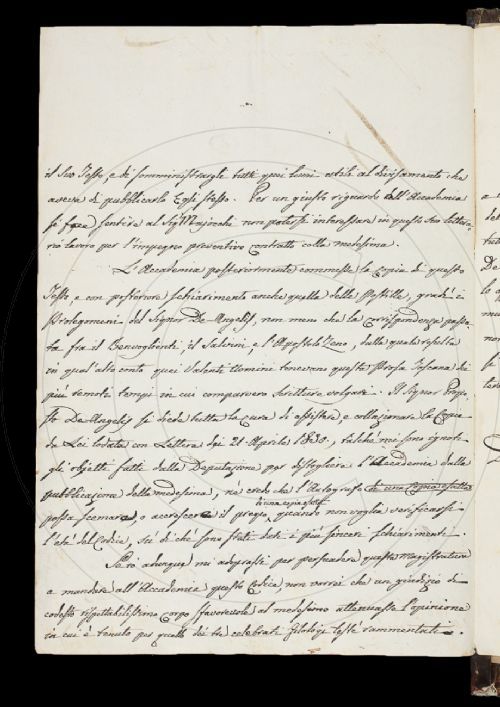 il suo Testo, e di somministrargli tutti quei lumi utili al divisamento che
aveva di pubblicarlo Egli stesso. Per un giusto riguardo dell'Accademia
si fece sentire al Sig. Majocchi non potersi interessare in questo suo lettera-
rio lavoro per l'impegno preventivo contratto colla medesima.
L'Accademia posteriormente commesse la copia di questo
Testo, e con posteriore schiarimento anche quella delle Postille, gradì i
Prolegomeni del Signor De Angelis, non meno che la corrispondenza passa-
ta fra il Benvoglienti il Salvini, e l'Apostolo Zeno, dalla quale risulta
in qual'alto conto quei Valenti Uomini tenevano questa Prosa Toscana dei
più remoti tempi in cui comparvero scritture volgari. Il Signor Propo-
sto De Angelis si diede tutta la cura di assistere, e collazionare la Copia
da Lei lodata con Lettera dei 21 Aprile 1830, talché mi sono ignoti
gli obietti fatti dalla Deputazione per distogliere l'Accademia dalla
pubblicazione della medesima, nè credo che l'Autografo di una copia esatta
possa scemare, o accrescere il pregio, quando non voglia verificarsi
l'età del Codice, su di che sono stati dati i più sinceri schiarimenti.
Se io adunque mi adoprassi per persuadere questa Magistratura
a mandare all'Accademia questo Codice, non vorrei che un giudizio di
codesto rispettabilissimo corpo favorevole al medesimo attenuasse l'opinione
in cui è tenuto per quello dei tre celebrati Filologi testè rammentati.